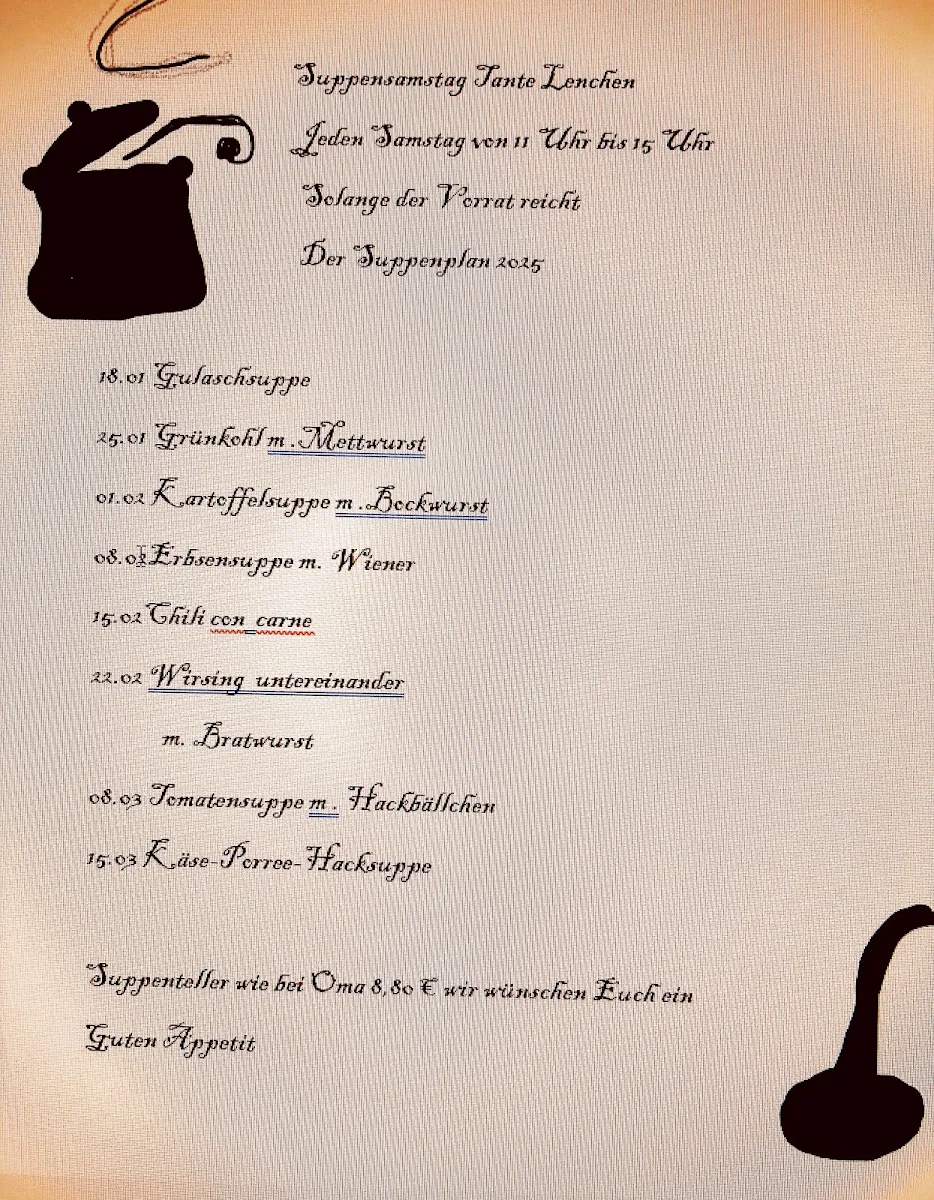 Suppensamstag Tante Lenchen
Jeden Samstag von 11 Uhr bis 15 Uhr
Solange der Vorrat reicht
Der Suppenplan 2025
18.01 Gulaschsuppe
25.01 Grünkohl m .Mettwurst
01.02 Kartoffelsuppe m .Bockwurst
08.02 Erbsensuppe m. Wiener
15.02 Chili con carne
22.02 Wirsing untereinander
m. Bratwurst
08.03 Tomatensuppe m . Hackbällchen
15.03 Käse-Porree-Hacksuppe
Suppenteller wie bei Oma 8,80 € wir wünschen Euch ein
Guten Appetit